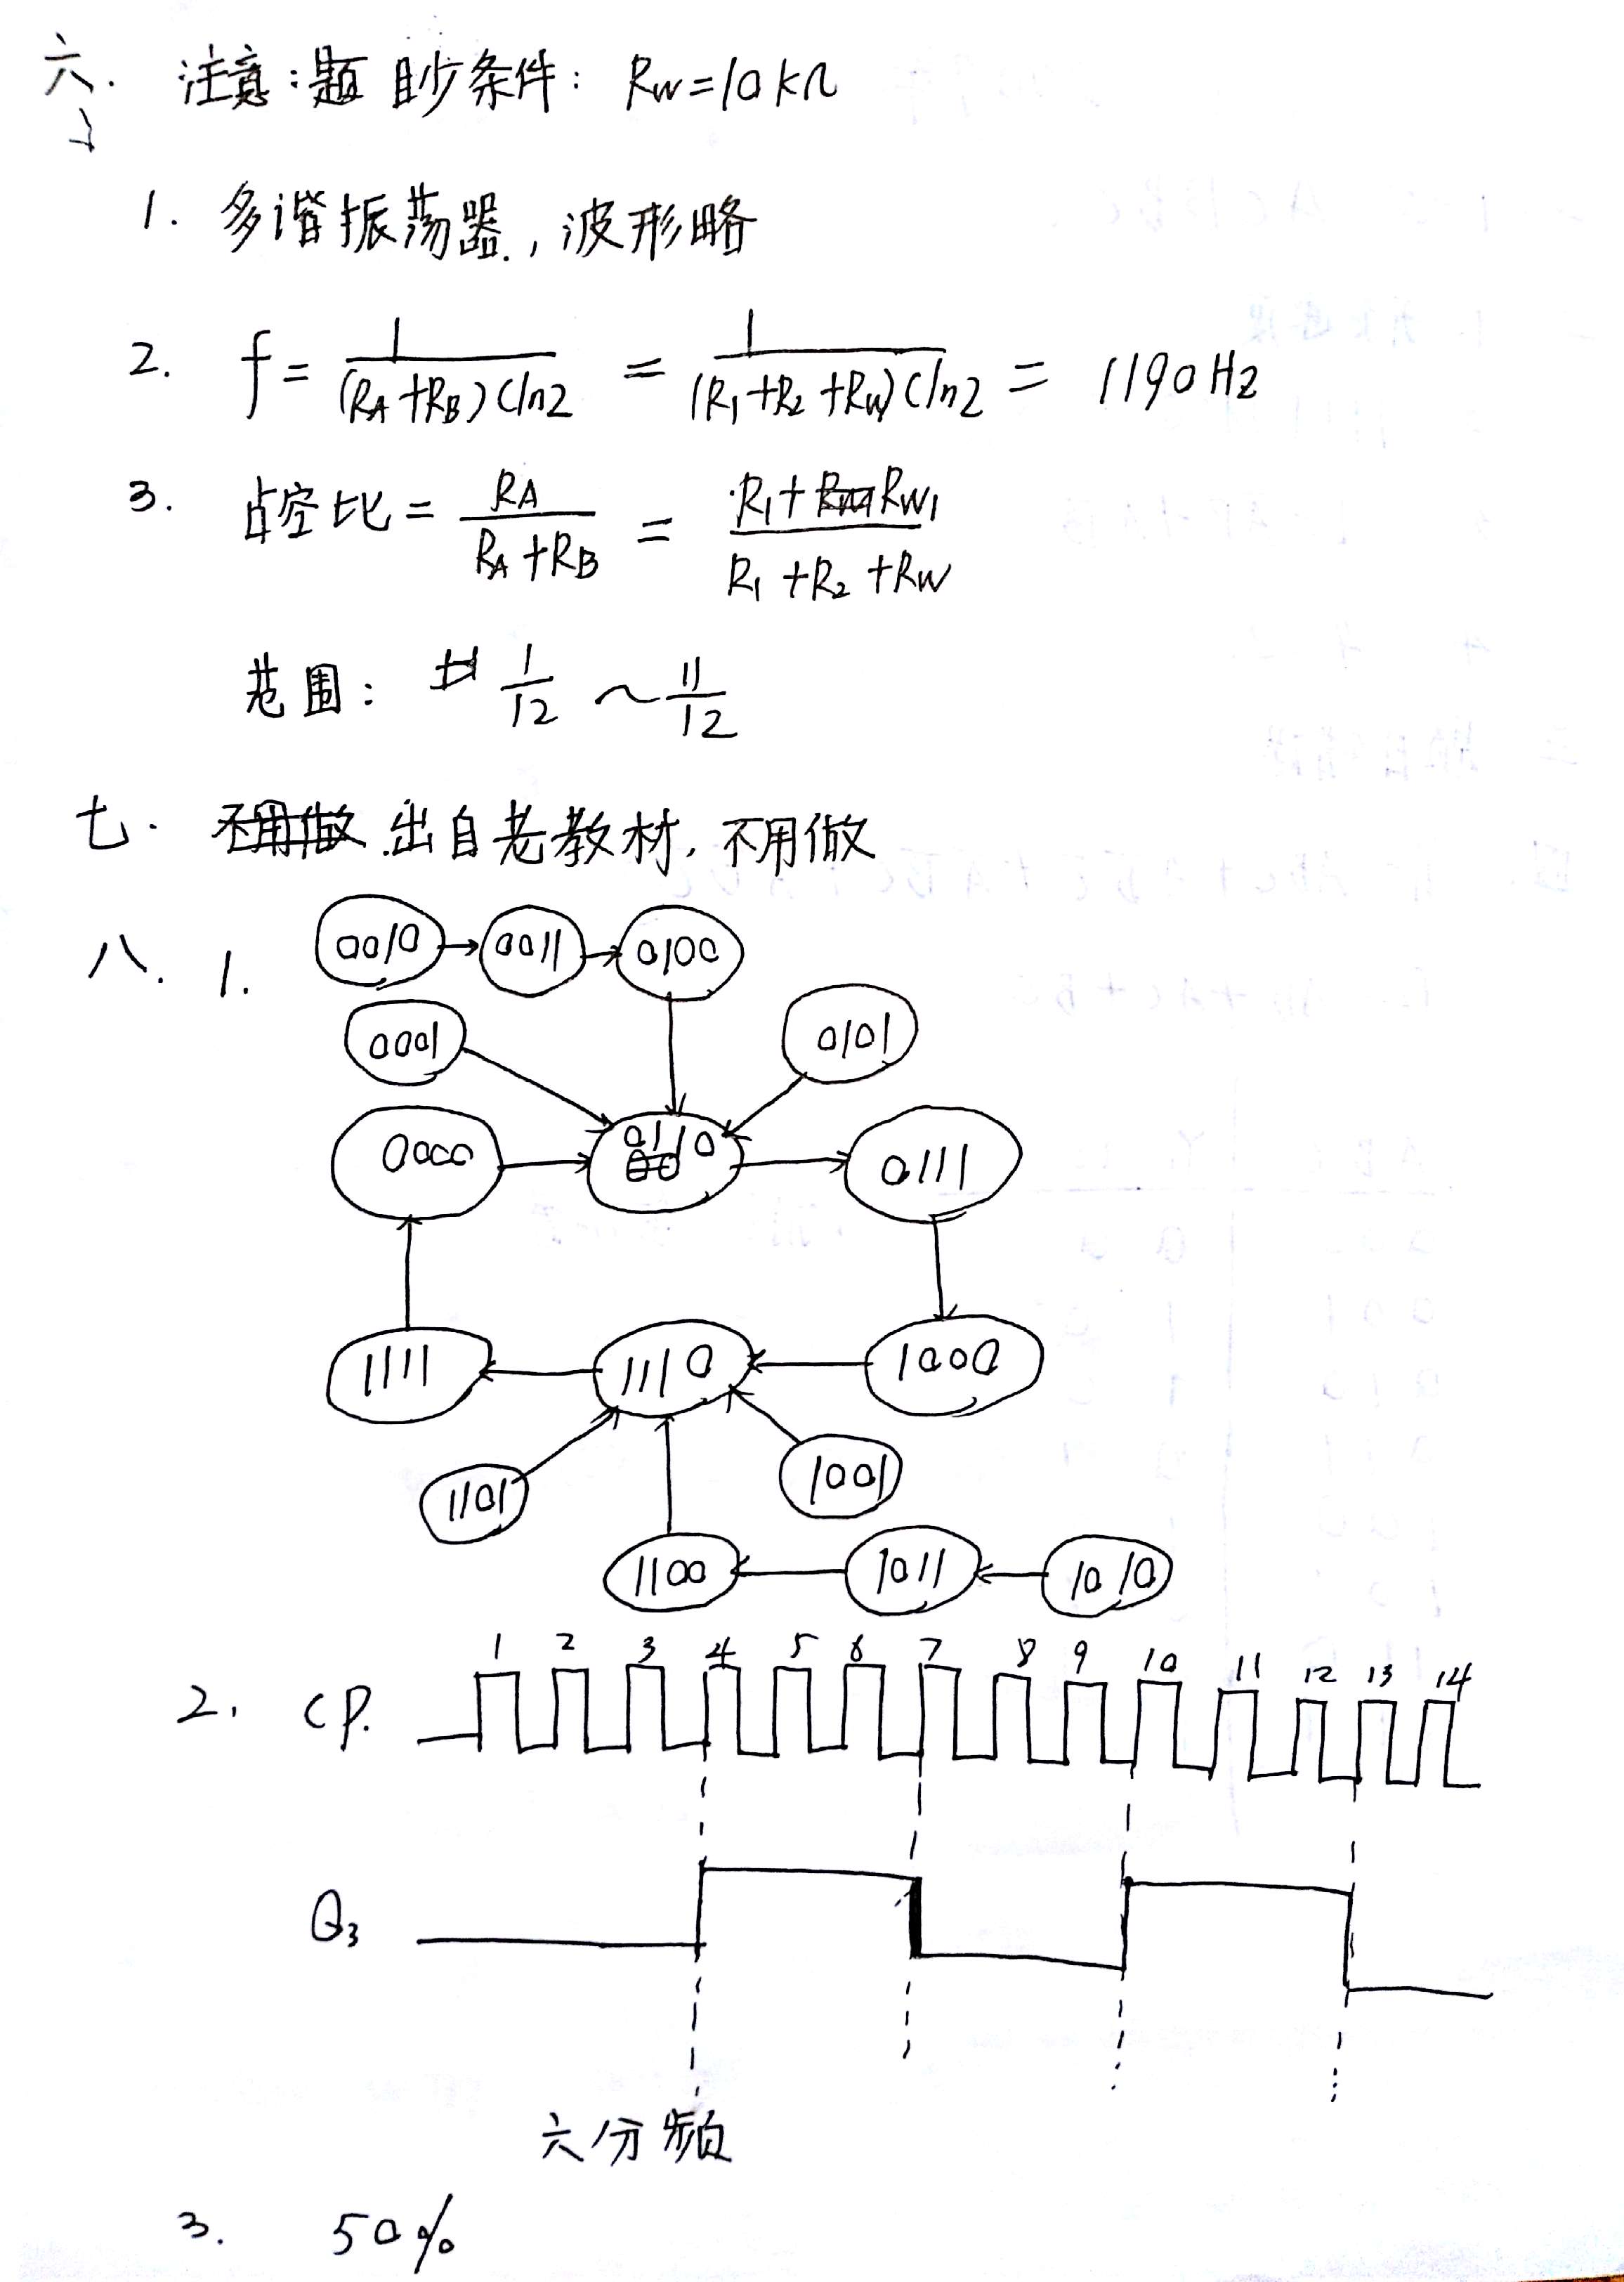 六、 注意:题目少条件: Rw=10kΩ
1. 多谐振荡器,波形略
2. f = 1/((RA+RB)Cln2) = 1/((R1+R2+Rw)Cln2) = 1190Hz
3. 占空比 = RA/(RA+RB) = (R1+RW1)/(R1+R2+RW)
范围: 1/12 ~ 11/12
七. 不用做 出自老教材, 不用做
八. 1. 0010 0011 0100
0001 0101
0000 0110 0111
1111 1110 1000
1101 1001
1100 1011 1010
1 2 3 4 5 6 7 8 9 10 11 12 13 14
2. CP.
Q3
六分频
3. 50%